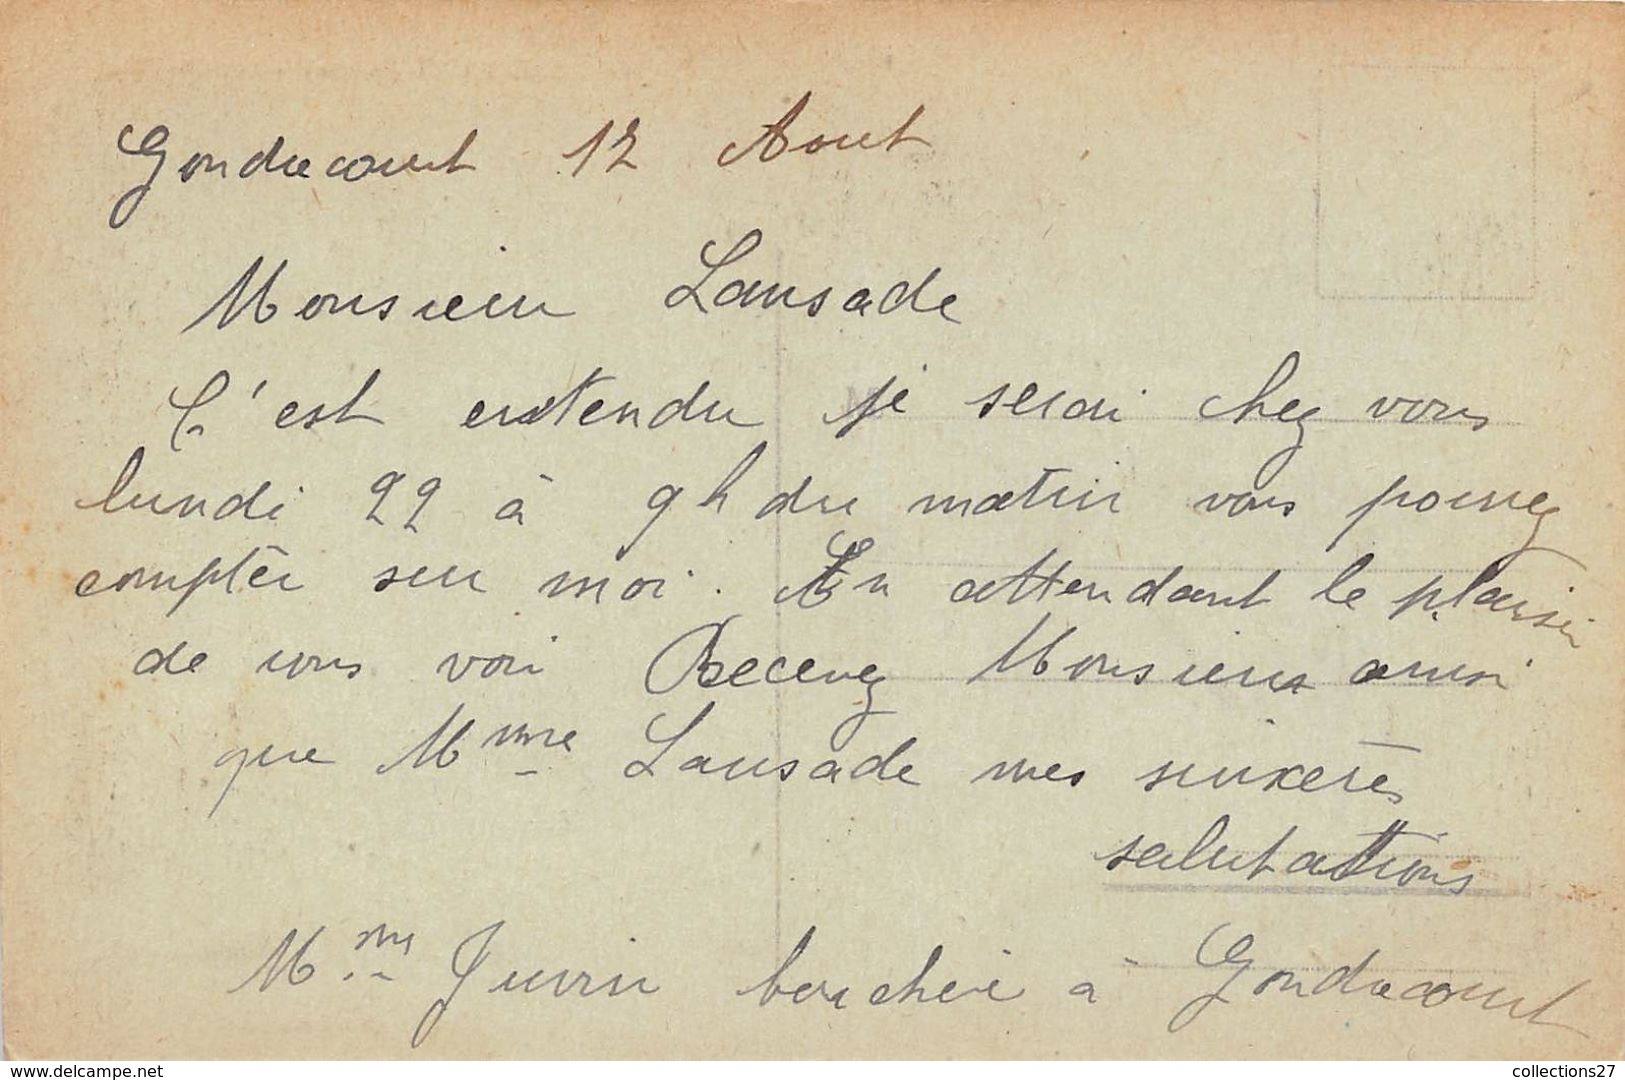 Gondrecourt 12 Aout
Monsieur Lansade
C'est entendu je serai chez vous
lundi 22 à 9 h du matin vous pouvez
compter sur moi. En attendant le plaisir
de vous voir Recevez Monsieur ainsi
que Mme Lansade mes sinxères
salutations
Mme Juvin bouchère à Gondrecourt
www.delcampe.net
collections27